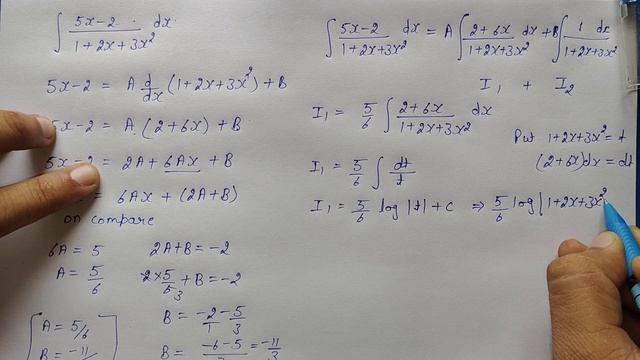 ∫ (5x-2)/(1+2x+3x²) dx.
5x-2 = A d/dx (1+2x+3x²) + B
5x-2 = A. (2+6x) + B
5x-2 = 2A + 6Ax + B
= 6Ax + (2A+B)
on compare
6A = 5 2A+B = -2
A = 5/6 2 × 5/6 3 + B = -2
B = -2/1 - 5/3
A = 5/6
B = -11/ B = -6-5/ = -11/3
∫ (5x-2)/(1+2x+3x²) dx = A ∫ (2+6x)/(1+2x+3x²) dx + B ∫ 1 dx/(1+2x+3x²)
I₁ + I₂
I₁ = 5/6 ∫ (2+6x)/(1+2x+3x²) dx
Put 1+2x+3x² = t
(2+6x)dx = dt
I₁ = 5/6 ∫ dt/t
I₁ = 5/6 log |t| + c ⇒ 5/6 log |1+2x+3x²